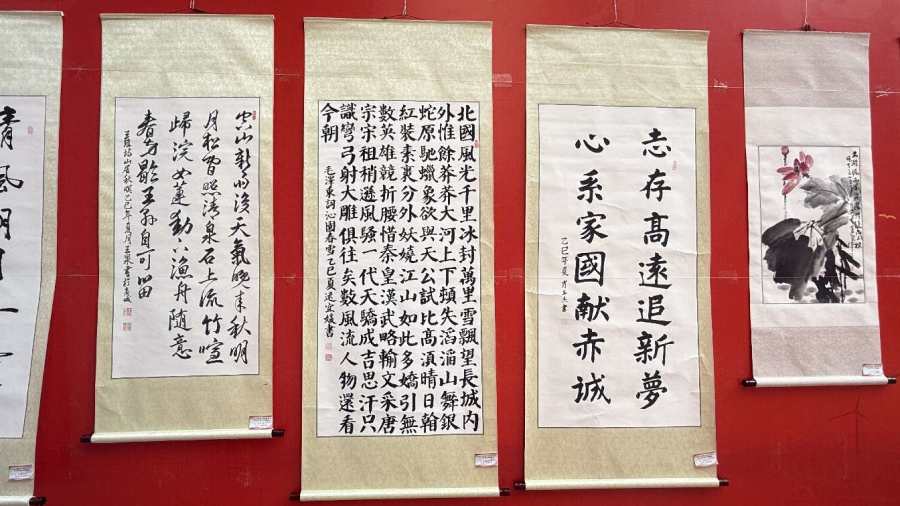 清風明月一
空山新雨後天氣晚来秋明
月松間照清泉石上流竹喧
歸浣女蓮動下漁舟隨意
春芳歇王孫自可留
王維詩山居秋暝乙巳年夏月王泉書於
北國風光千里冰封萬里雪飄望長城内
外惟餘莽莽大河上下頓失滔滔山舞銀
蛇原馳蠟象欲與天公試比高須晴日看
紅裝素裹分外妖嬈江山如此多嬌引無
數英雄競折腰惜秦皇漢武略輸文采唐
宗宋祖稍遜風騷一代天驕成吉思汗只
識彎弓射大雕俱往矣數風流人物還看
今朝
毛澤東詞沁園春雪乙巳夏
志存高遠追新夢
心系家國献赤诚
乙巳年夏